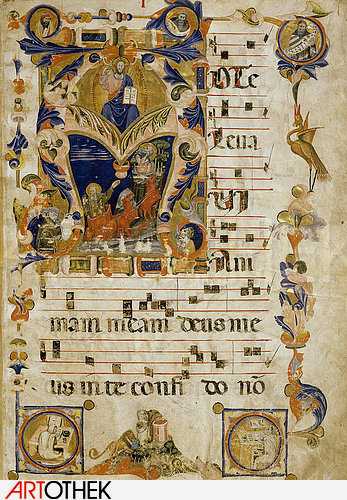 D Te
leva
vi
Ani
mam meam deus me
us in te confi do nō
ARTOTHEK